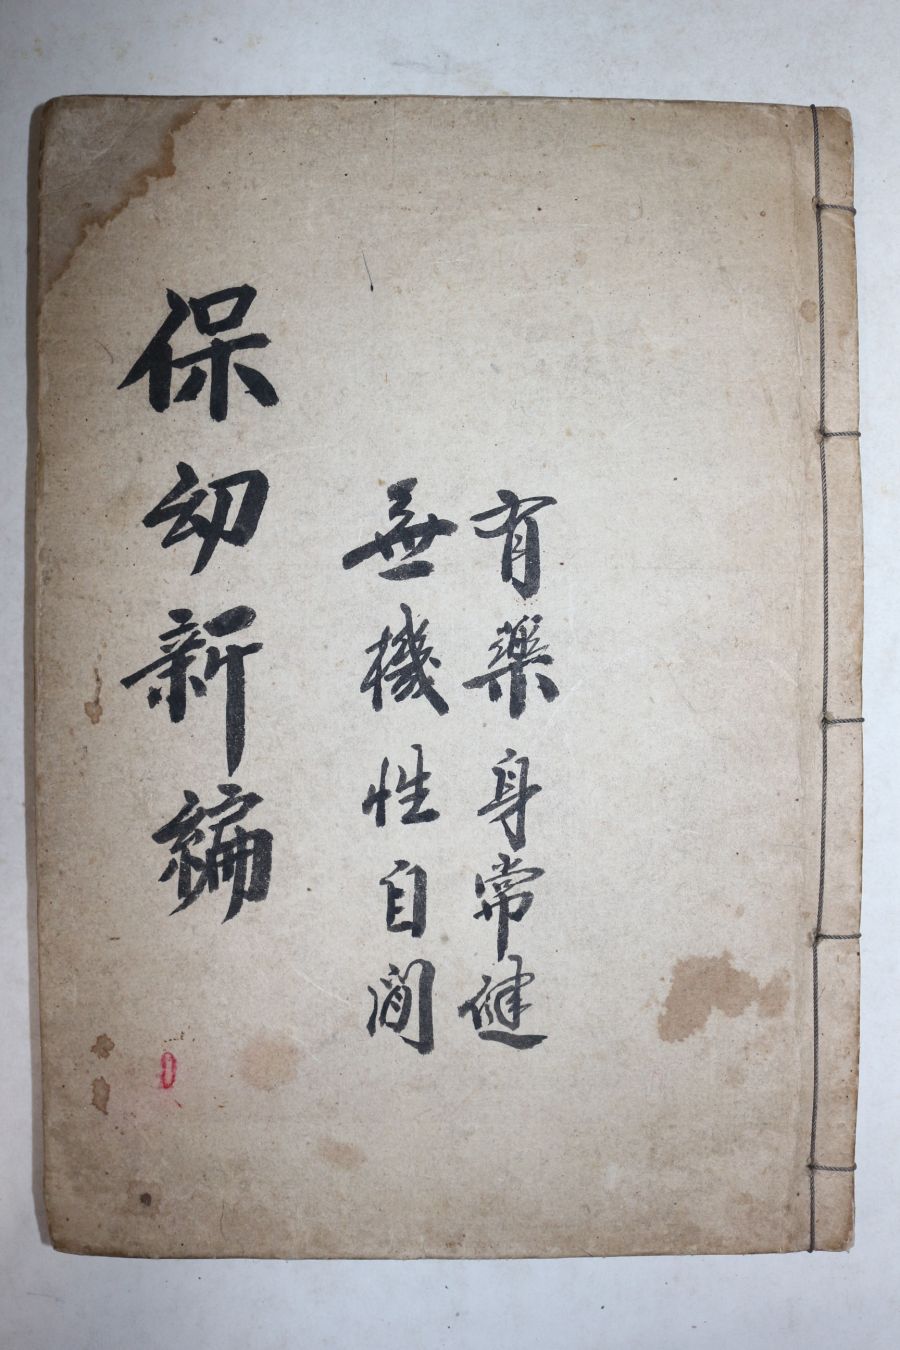 有藥身常健
無機性自閒
保幼新編